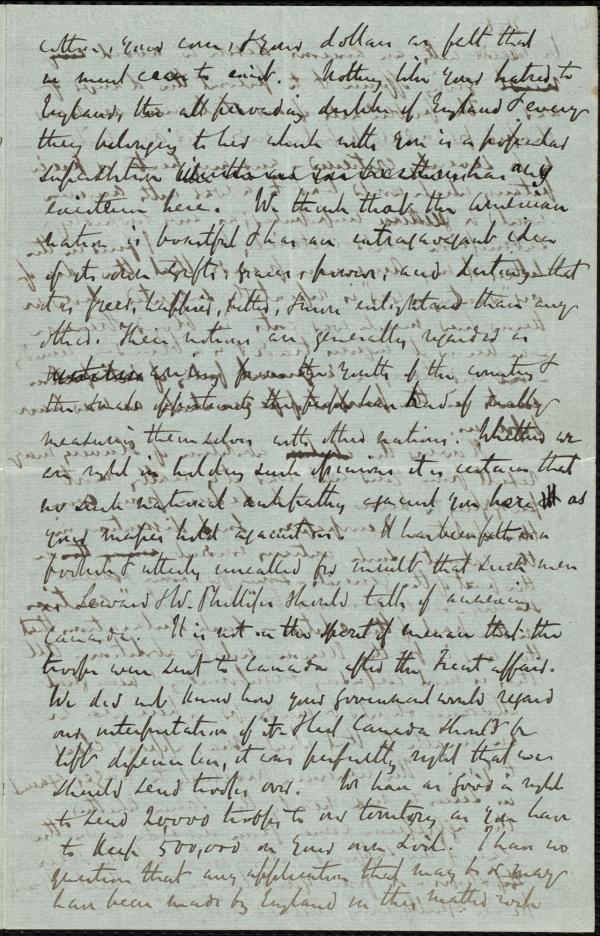 cotton, your corn, & your dollars as felt that
we must cease to exist. Nothing like your hatred to
England, the all pervading dislike of England & every
thing belonging to her which with you is a popular
superstition has any
existence here. We think that the American
nation is boastful & has an extravagant idea
of its own gifts, graces, powers, and destiny - that
it is freer, happier, better, & more enlightened than any
other. Their notions are generally regarded as
arising from the youth of the country &
the small opportunity the people have had of really
measuring themselves with other nations. Whether we
are right in holding such opinions it is certain that
no such national antipathy against you here as
your masses hold against us. It has been felt as a
& utterly uncalled for insult that such men
as Seward & W. Phillips should talk of annexing
Canada. It is not in the spirit of menace that the
troops were sent to Canada after the Trent affair.
We did not know how your government would regard
our interpretation of it & lest Canada should be
left defenceless, it was perfectly right that we
should send troops over. We have as good a right
to send 20,000 troops to our territory as you have
to keep 500,000 on your own soil. I have no
question that any application that may be or may
have been made by England in this matter will